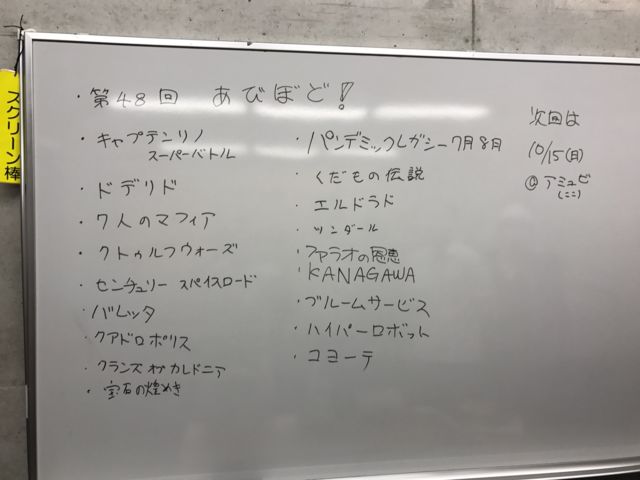 スクリーン棒
・第48回 あびぼど！
・キャプテンリノ
スーパーバトル
・ドデリド
・7人のマフィア
・クトゥルフウォーズ
・センチュリー スパイスロード
・バレッタ
・クアドロポリス
・クランズオブカルドニア
・宝石の煌めき
・パンデミックレガシー7月8月
・くだもの伝説
・エルドラド
・ツンダール
・ファラオの恩恵
・KANAGAWA
・ブルームサービス
・ハイパーロボット
・コヨーテ
次回は
10/15(日)
@アミュゼ
(ここ)